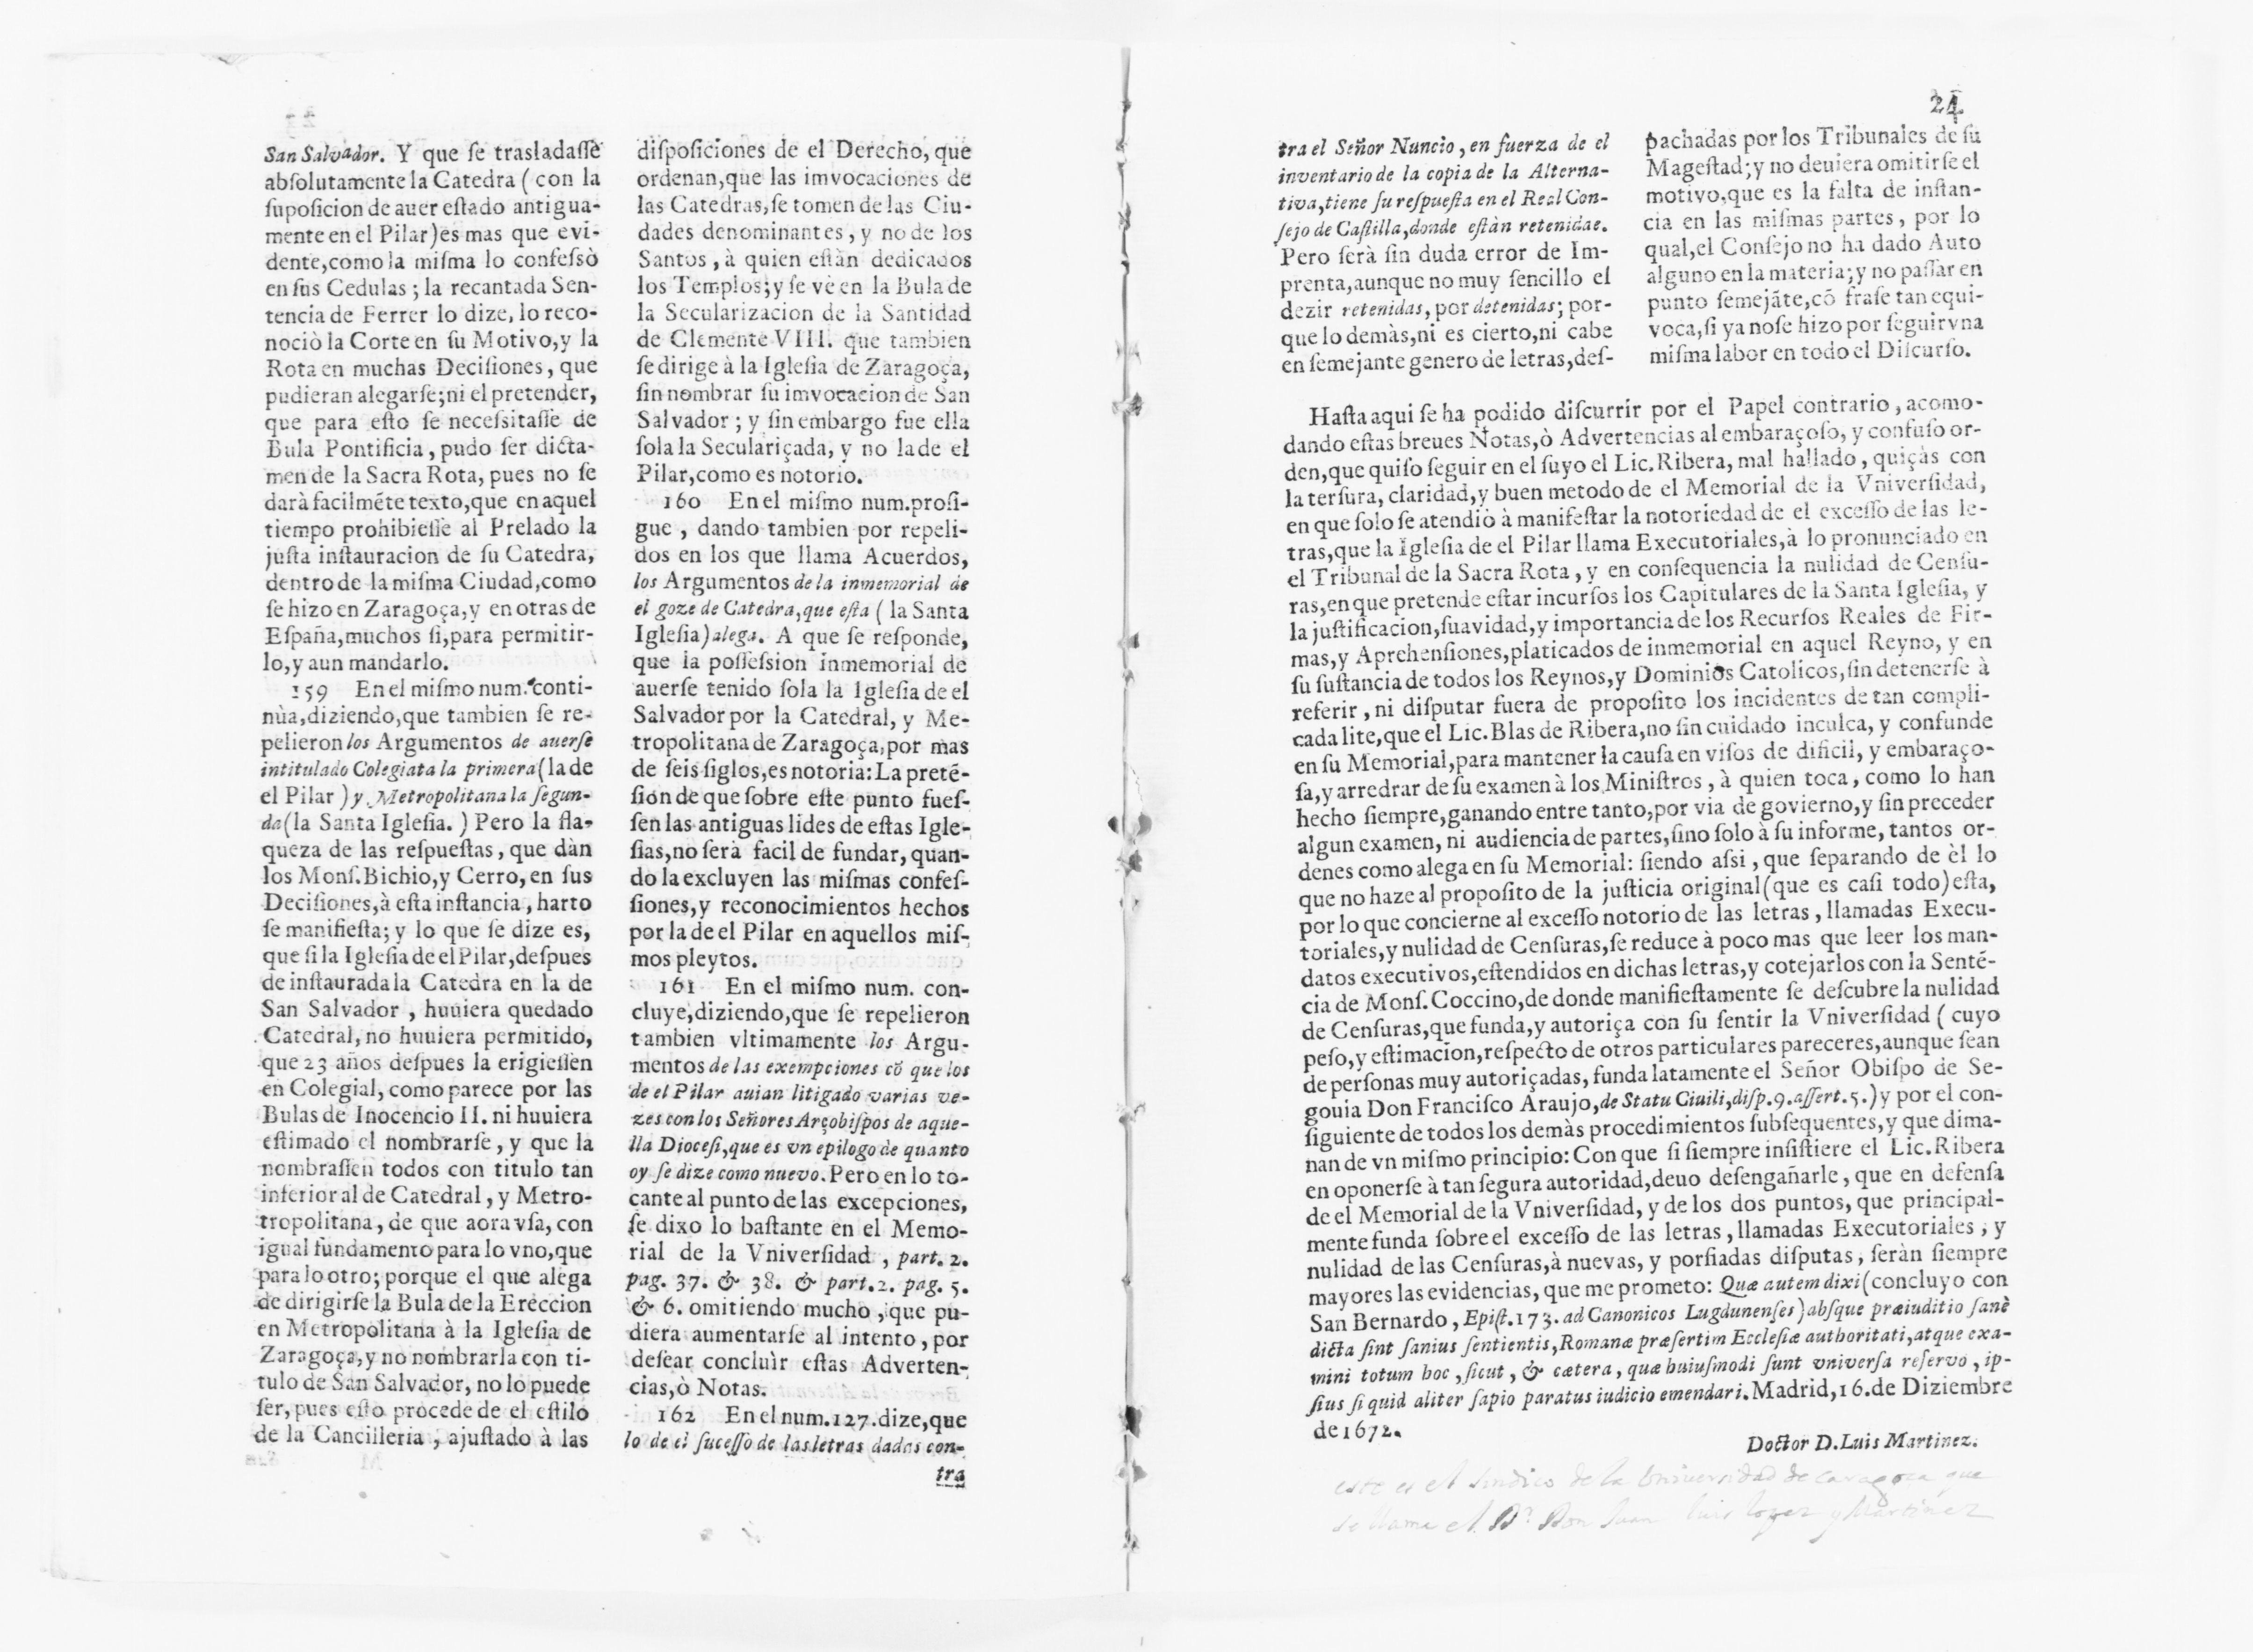 San Salvador. Y que ſe trasladaſſe
abſolutamente la Catedra ( con la
ſupoſicion de auer eſtado antigua-
mente en el Pilar)es mas que evi-
dente,como la miſma lo confeſsò
en ſus Cedulas ; la recantada Sen-
tencia de Ferrer lo dize, lo reco-
nociò la Corte en ſu Motivo,y la
Rota en muchas Deciſiones, que
pudieran alegarſe;ni el pretender,
que para eſto ſe neceſsitaſſe de
Bula Pontificia, pudo ſer dicta-
men de la Sacra Rota, pues no ſe
darà facilmẽte texto,que en aquel
tiempo prohibieſſe al Prelado la
juſta inſtauracion de ſu Catedra,
dentro de la miſma Ciudad,como
ſe hizo en Zaragoça,y en otras de
Eſpaña,muchos ſi,para permitir-
lo,y aun mandarlo.
159 En el miſmo num. conti-
nùa,diziendo,que tambien ſe re-
pelieron los Argumentos de auerſe
intitulado Colegiata la primera(la de
el Pilar ) y Metropolitana la ſegun-
da(la Santa Igleſia. ) Pero la fla-
queza de las reſpueſtas, que dàn
los Monſ.Bichio,y Cerro,en ſus
Deciſiones,à eſta inſtancia, harto
ſe manifieſta; y lo que ſe dize es,
que ſi la Igleſia de el Pilar,deſpues
de inſtaurada la Catedra en la de
San Salvador , huuiera quedado
Catedral, no huuiera permitido,
que 23 años deſpues la erigieſſen
en Colegial, como parece por las
Bulas de Inocencio II. ni huuiera
eſtimado el nombrarſe, y que la
nombraſſen todos con titulo tan
inferior al de Catedral, y Metro-
tropolitana, de que aora vſa, con
igual fundamento para lo vno,que
para lo otro; porque el que alega
de dirigirſe la Bula de la Ereccion
en Metropolitana à la Igleſia de
Zaragoça,y no nombrarla con ti-
tulo de San Salvador, no lo puede
ſer, pues eſto procede de el eſtilo
de la Cancilleria , ajuſtado à las
diſpoſiciones de el Derecho, que
ordenan,que las imvocaciones de
las Catedras,ſe tomen de las Ciu-
dades denominantes, y no de los
Santos , à quien eſtàn dedicados
los Templos;y ſe vè en la Bula de
la Secularizacion de la Santidad
de Clemente VIII. que tambien
ſe dirige à la Igleſia de Zaragoça,
ſin nombrar ſu imvocacion de San
Salvador ; y ſin embargo fue ella
ſola la Seculariçada, y no la de el
Pilar,como es notorio.
160 En el miſmo num.proſi-
gue , dando tambien por repeli-
dos en los que llama Acuerdos,
los Argumentos de la inmemorial de
el goze de Catedra,que eſta ( la Santa
Igleſia)alega. A que ſe reſponde,
que la poſſeſsion inmemorial de
auerſe tenido ſola la Igleſia de el
Salvador por la Catedral, y Me-
tropolitana de Zaragoça,por mas
de ſeis ſiglos,es notoria: La pretẽ-
ſion de que ſobre eſte punto fueſ-
ſen las antiguas lides de eſtas Igle-
ſias,no ſerà facil de fundar, quan-
do la excluyen las miſmas confeſ-
ſiones,y reconocimientos hechos
por la de el Pilar en aquellos miſ-
mos pleytos.
161 En el miſmo num. con-
cluye,diziendo,que ſe repelieron
tambien vltimamente los Argu-
mentos de las exempciones cõ que los
de el Pilar auian litigado varias ve-
zes con los Señores Arçobiſpos de aque-
lla Dioceſi,que es vn epilogo de quanto
oy ſe dize como nuevo. Pero en lo to-
cante al punto de las excepciones,
ſe dixo lo baſtante en el Memo-
rial de la Vniverſidad , part. 2.
pag. 37. & 38. & part.2. pag. 5.
& 6. omitiendo mucho , que pu-
diera aumentarſe al intento, por
deſear concluìr eſtas Adverten-
cias,ò Notas.
162 En el num.127.dize,que
lo de el ſuceſſo de las letras dadas con-
tra
24
tra el Señor Nuncio, en fuerza de el
inventario de la copia de la Alterna-
tiva,tiene ſu reſpueſta en el Real Con-
ſejo de Caſtilla,donde eſtàn retenidae.
Pero ſerà ſin duda error de Im-
prenta,aunque no muy ſencillo el
dezir retenidas, por detenidas; por-
que lo demàs,ni es cierto,ni cabe
en ſemejante genero de letras,deſ-
pachadas por los Tribunales de ſu
Mageſtad; y no deuiera omitirſe el
motivo,que es la falta de inſtan-
cia en las miſmas partes , por lo
qual,el Conſejo no ha dado Auto
alguno en la materia;y no paſſar en
punto ſemejãte,cõ fraſe tan equi-
voca,ſi ya noſe hizo por ſeguir vna
miſma labor en todo el Diſcurſo.
Haſta aqui ſe ha podido diſcurrir por el Papel contrario, acomo-
dando eſtas breues Notas,ò Advertencias al embaraçoſo, y confuſo or-
den,que quiſo ſeguir en el ſuyo el Lic.Ribera, mal hallado, quiçàs con
la terſura, claridad,y buen metodo de el Memorial de la Vniverſidad,
en que ſolo ſe atendiò à manifeſtar la notoriedad de el exceſſo de las le-
tras,que la Igleſia de el Pilar llama Executoriales,à lo pronunciado en
el Tribunal de la Sacra Rota , y en conſequencia la nulidad de Cenſu-
ras,en que pretende eſtar incurſos los Capitulares de la Santa Igleſia, y
la juſtificacion,ſuavidad,y importancia de los Recurſos Reales de Fir-
mas,y Aprehenſiones,platicados de inmemorial en aquel Reyno, y en
ſu ſuſtancia de todos los Reynos,y Dominios Catolicos,ſin detenerſe à
referir , ni diſputar fuera de propoſito los incidentes de tan compli-
cada lite,que el Lic.Blas de Ribera,no ſin cuidado inculca, y confunde
en ſu Memorial,para mantener la cauſa en viſos de dificil, y embaraço-
ſa,y arredrar de ſu examen à los Miniſtros , à quien toca, como lo han
hecho ſiempre,ganando entre tanto,por via de govierno,y ſin preceder
algun examen, ni audiencia de partes,ſino ſolo à ſu informe, tantos or-
denes como alega en ſu Memorial: ſiendo aſsi , que ſeparando de èl lo
que no haze al propoſito de la juſticia original(que es caſi todo) eſta,
por lo que concierne al exceſſo notorio de las letras , llamadas Execu-
toriales,y nulidad de Cenſuras,ſe reduce à poco mas que leer los man-
datos executivos,eſtendidos en dichas letras,y cotejarlos con la Sentẽ-
cia de Monſ.Coccino,de donde manifieſtamente ſe deſcubre la nulidad
de Cenſuras,que funda,y autoriça con ſu ſentir la Vniverſidad ( cuyo
peſo,y eſtimacion,reſpecto de otros particulares pareceres,aunque ſean
de perſonas muy autoriçadas, funda latamente el Señor Obiſpo de Se-
gouia Don Franciſco Araujo,de Statu Ciuili,diſp.9.aſſert.5.) y por el con-
ſiguiente de todos los demàs procedimientos ſubſequentes,y que dima-
nan de vn miſmo principio: Con que ſi ſiempre inſiſtiere el Lic.Ribera
en oponerſe à tan ſegura autoridad,deuo deſengañarle, que en defenſa
de el Memorial de la Vniverſidad, y de los dos puntos, que principal-
mente funda ſobre el exceſſo de las letras, llamadas Executoriales , y
nulidad de las Cenſuras,à nuevas, y porfiadas diſputas, ſeràn ſiempre
mayores las evidencias, que me prometo: Quæ autem dixi (concluyo con
San Bernardo , Epiſt.173. ad Canonicos Lugdunenſes) abſque præiuditio ſanè
dicta ſint ſanius ſentientis,Romanæ præſertim Eccleſiæ authoritati,atque exa-
mini totum hoc , ſicut , & cætera, quæ huiuſmodi ſunt vniverſa reſervo , ip-
ſius ſi quid aliter ſapio paratus iudicio emendari. Madrid,16.de Diziembre
de 1672.
Doctor D.Luis Martinez.
este es el sindico de la Universidad de caragoça que
se llama el Dr Don Juan luis lopez y Martinez